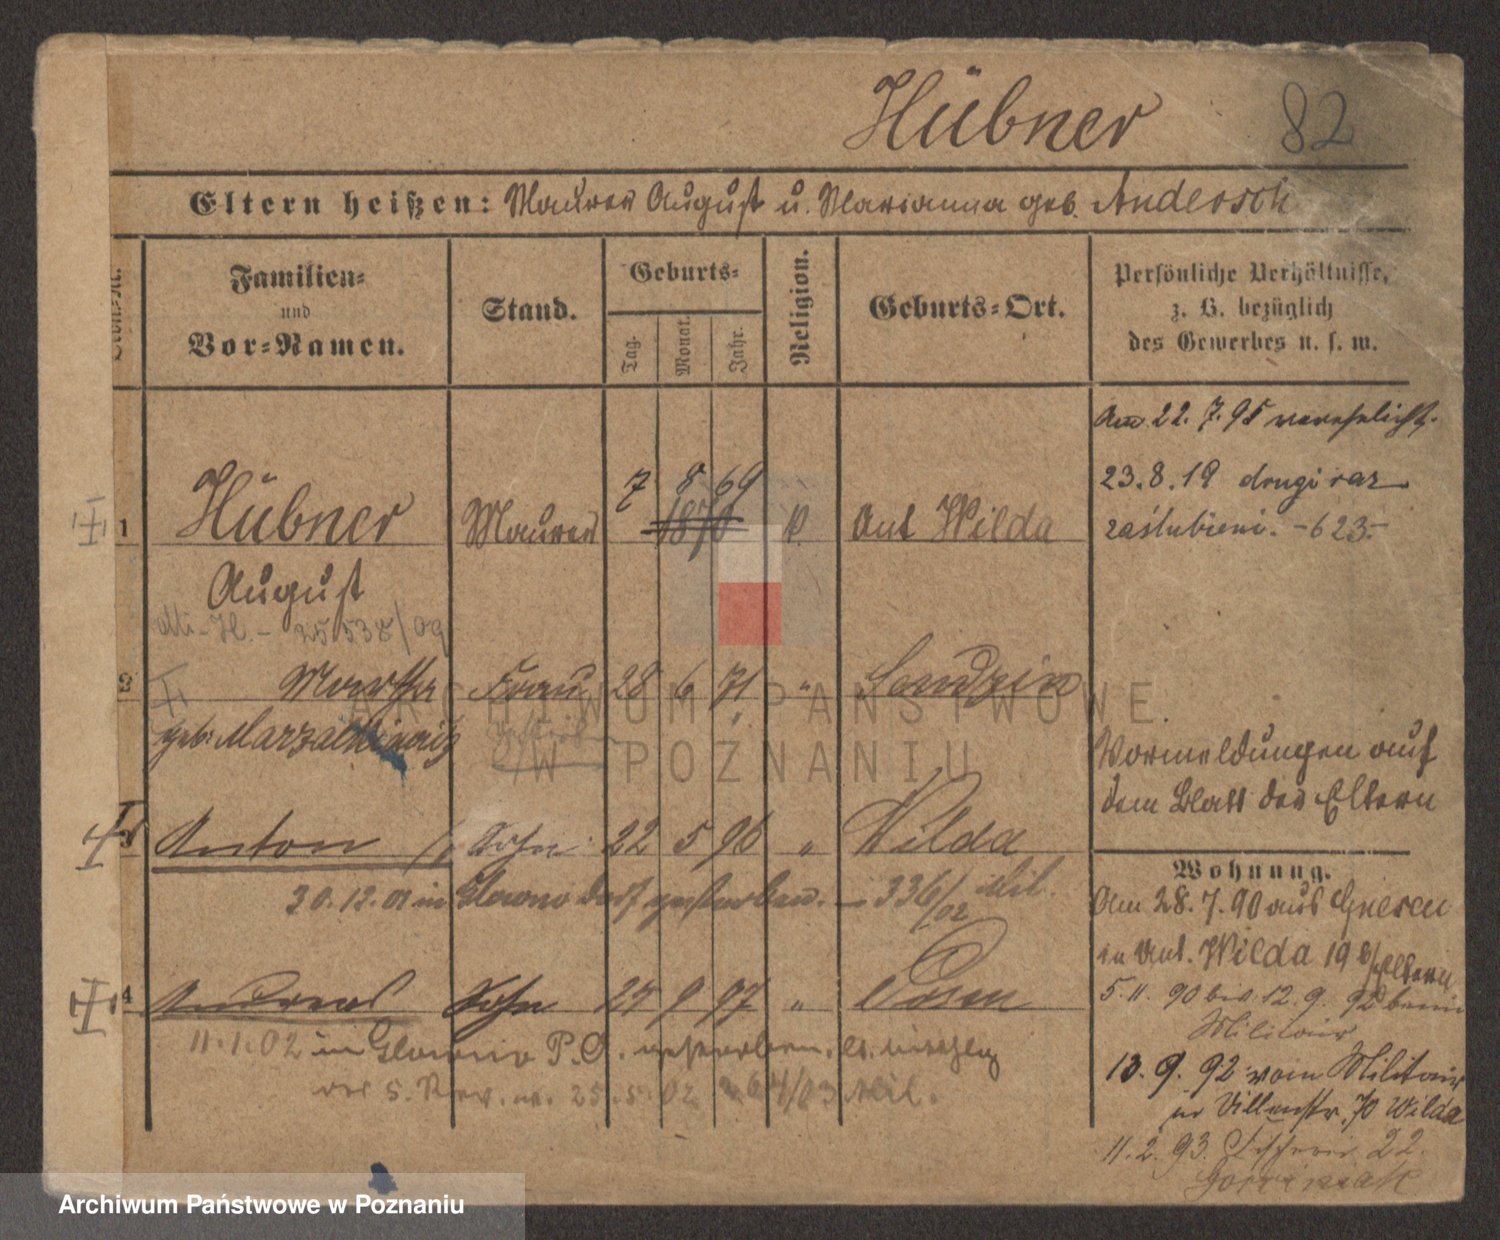 Hübner 82
Eltern heißen: Maurer August u. Marianna geb. Andersch
Familien-
und
Vor-Namen.
Stand.
Geburts-
Tag.
Monat.
Jahr.
Religion.
Geburts-Ort.
Persönliche Verhältnisse,
z. B. bezüglich
des Gewerbes u. s. w.
Am 22. 7. 95 verehelicht.
23.8.19 drugi raz
zaślubieni. -623-
7 8 69
1 Hübner Maurer 1870 k. Amt Wilda
August
25538/09
2 Martha Frau 28 6 71 "
geb:
Vormeldungen auf
dem Blatt der Eltern
3 Anton Sohn 22 5 96 " Wilda
30.12.01 in Glowno Dorf gestorben. - 336/02 Mil.
Wohnung.
Am 28. 7. 90 aus Gnesen
in Amt. Wilda 19 b/Eltern
4 Andreas Sohn 27 9 97 " Posen
5. 11. 90 bis 12. 9. 92 beim
Militair
11.1.02 in Glowno P.O. gestorben.
13. 9. 92 vom Militair
in Villenstr. 70 Wilda
25.5.02 264/03 Mil.
11. 2. 93. 22.
ARCHIWUM PAŃSTWOWE
W POZNANIU
Archiwum Państwowe w Poznaniu